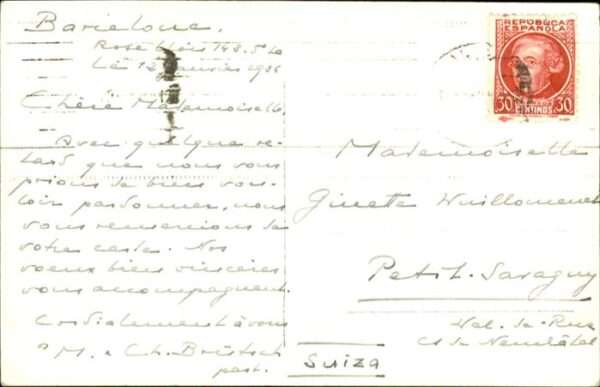 Barcelone.
Rosellois 148. 5º
Le 12 janvier 1936
Chère Mademoiselle,
Avec quelque re-
tard que nous vous
prions de bien vou-
loir pardonner, nous
vous remercions de
votre carte. Nos
voeux bien sincères
vous accompagnent.
Cordialement à vous
M. Ch. Brütsch
past.
REPÚBLICA
ESPAÑOLA
30 CENTIMOS 30
Mademoiselle
Ginette Vuilloumenet
Petit-Savagny
Val-de-Ruz
Ct de Neuchâtel
Suiza